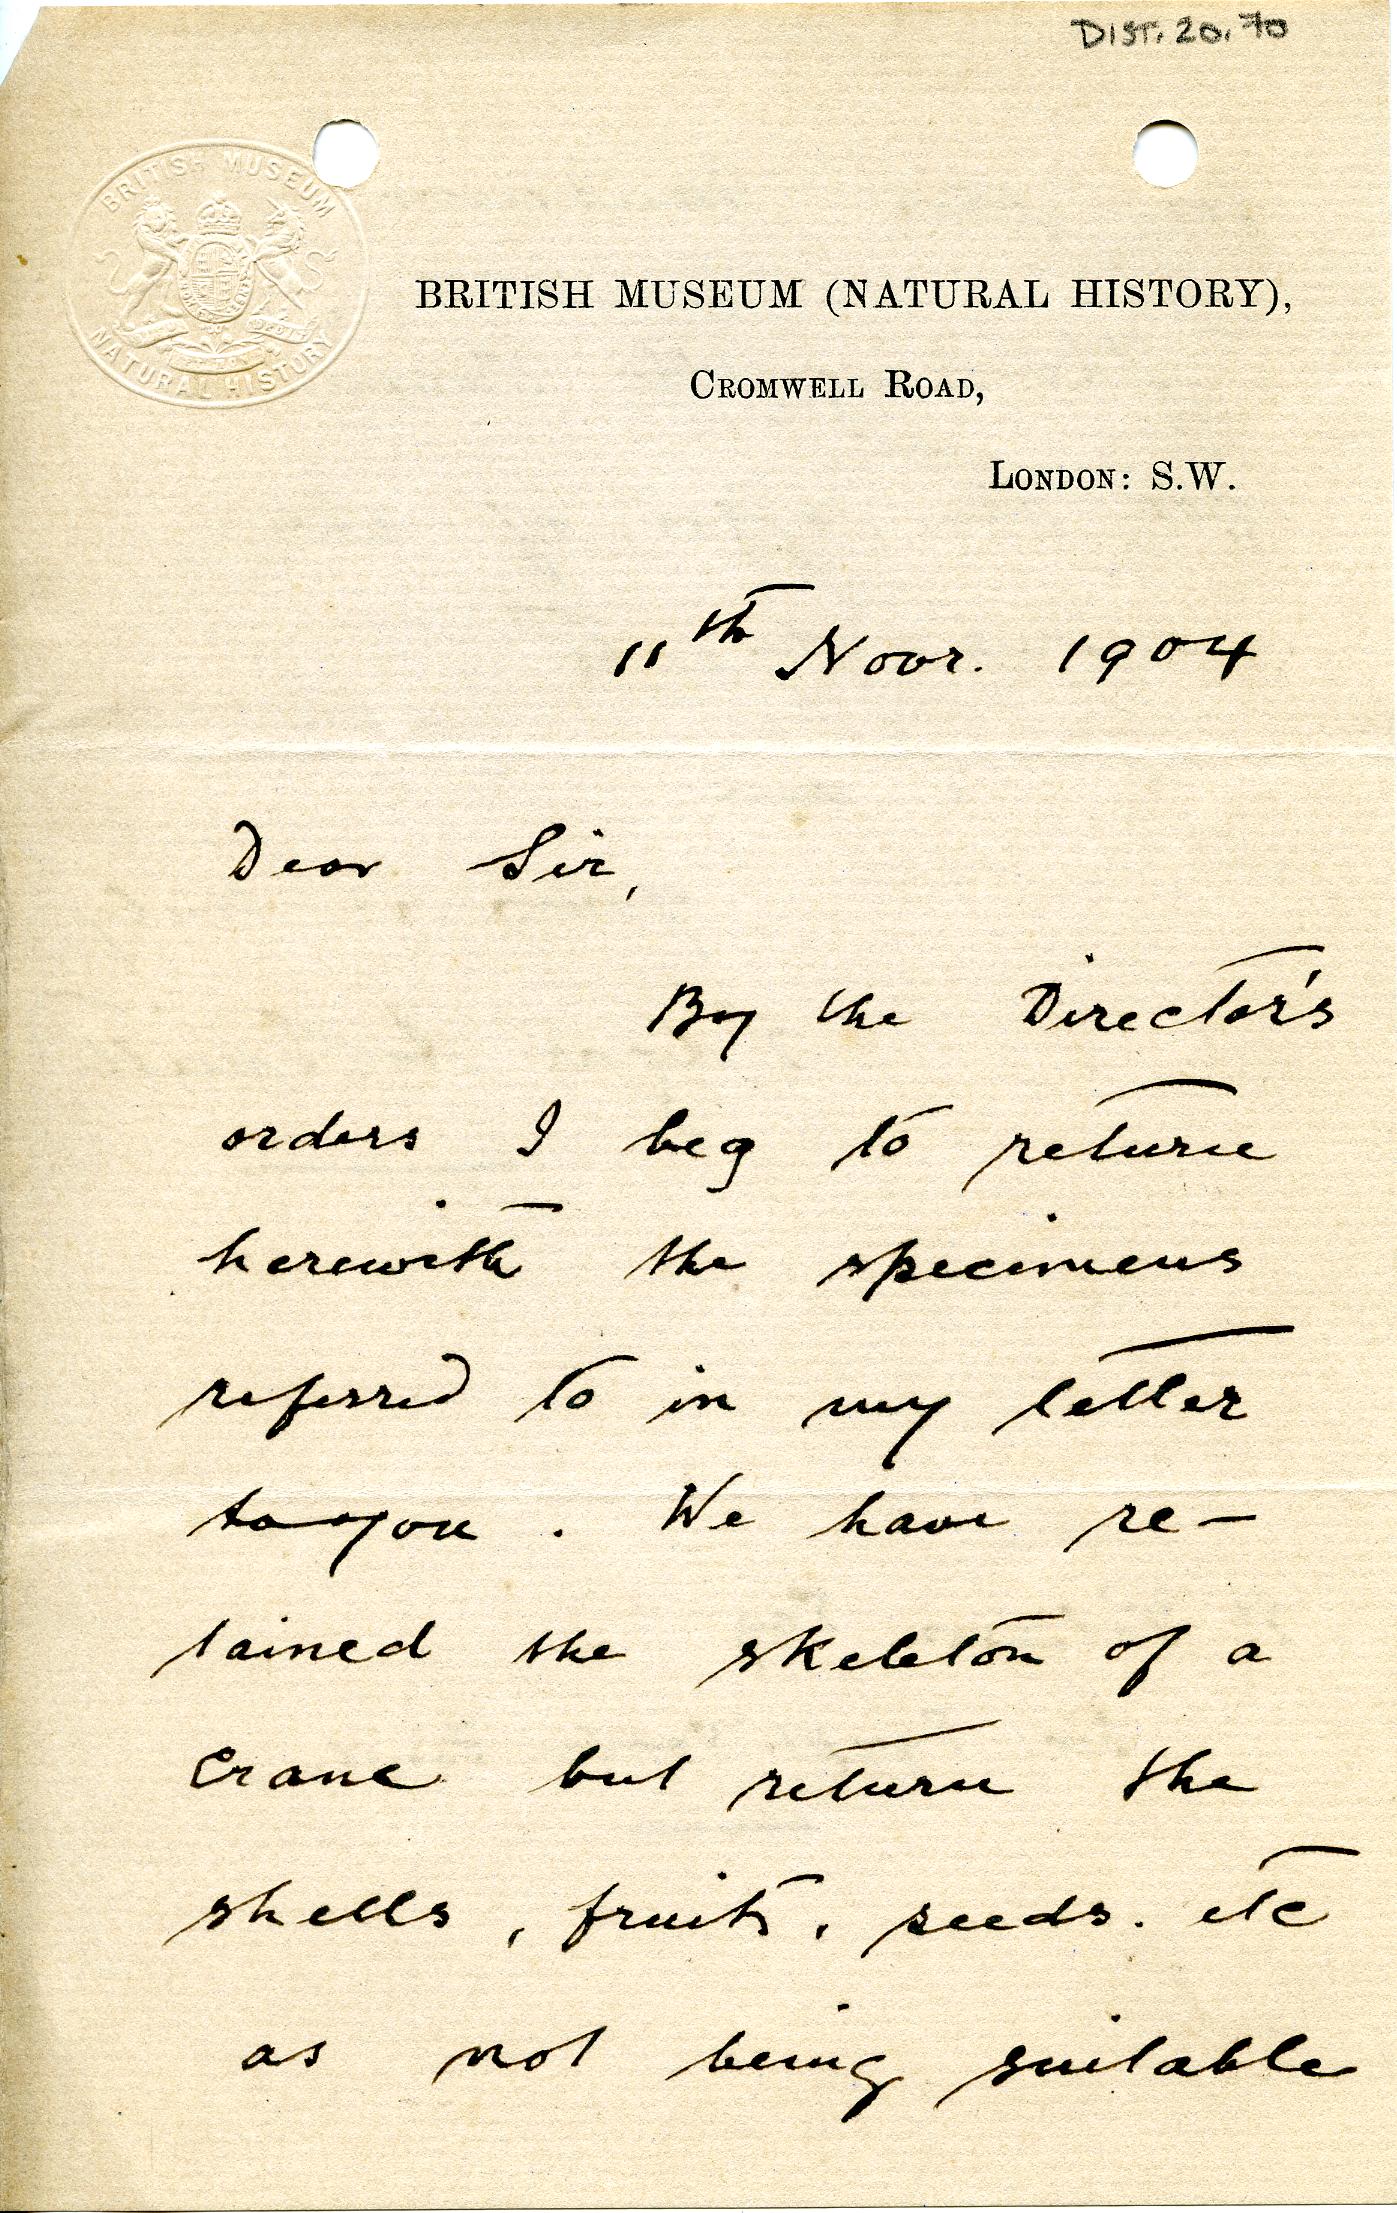 DIST. 20. 70
BRITISH MUSEUM
NATURAL HISTORY
BRITISH MUSEUM (NATURAL HISTORY),
CROMWELL ROAD,
LONDON: S.W.
11th Novr. 1904
Dear Sir,
By the Director's
orders I beg to return
herewith the specimens
referred to in my letter
to you. We have re-
tained the skeleton of a
Crane but return the
shells, fruits, seeds. etc
as not being suitable